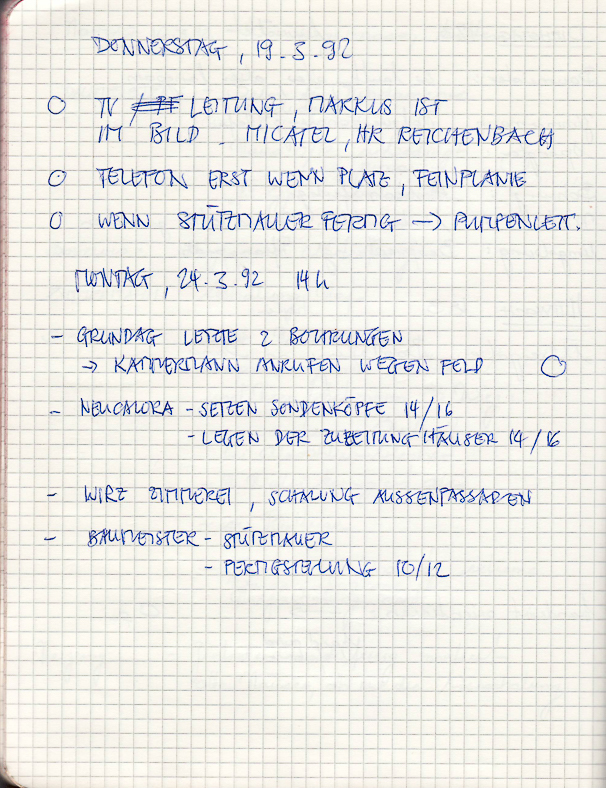 DONNERSTAG, 19.3.92
O TV LEITUNG, MARKUS IST
IM BILD. MICATEL, HR REICHENBACH
O TELEFON ERST WENN PLATZ, FEINPLANIE
O WENN STÜTZMAUER FERTIG → PUMPENLEIT.
MONTAG, 24.3.92 14h
- GRUNDAG LETZTE 2 BOHRUNGEN
→ KAMMERMANN ANRUFEN WEGEN FELD O
- NEUCALORA - SETZEN SONDENKÖPFE 14/16
- LEGEN DER ZULEITUNG HÄUSER 14/16
- WIRZ ZIMMEREI, SCHALUNG AUSSENFASSADEN
- BAUMEISTER - STÜTZMAUER
- FERTIGSTELLUNG 10/12